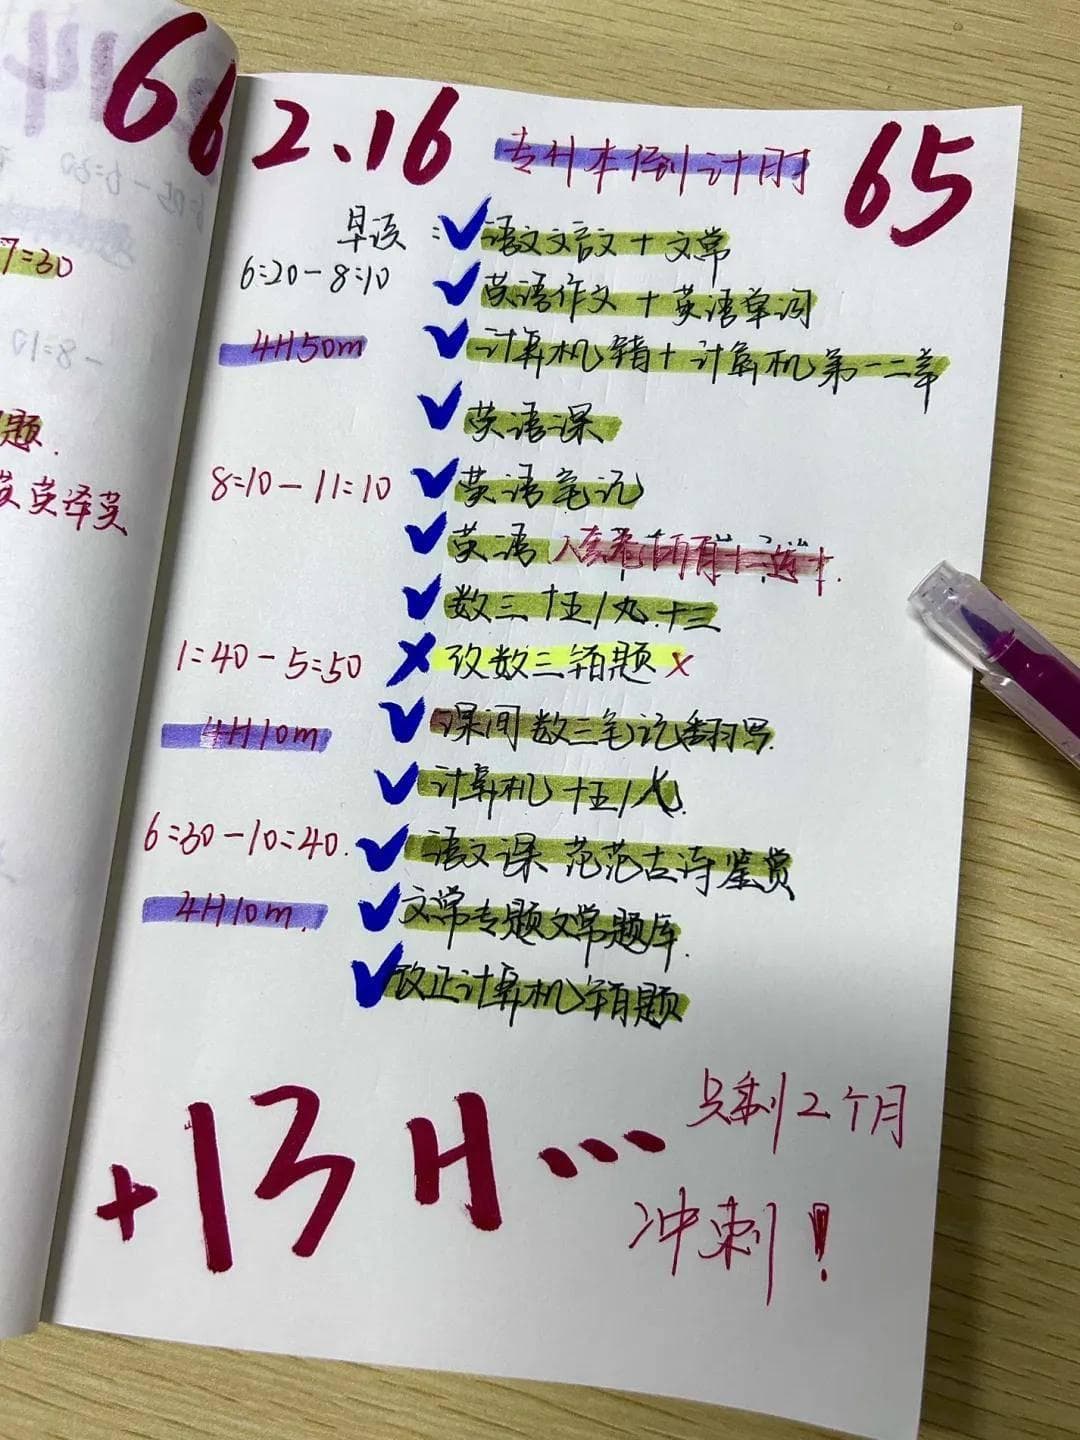 66
7:30
-8:10
题.
英译英
2.16 专升本倒计时 65
早读: ✓语文文言文+文常
6:20-8:10 ✓英语作文+英语单词
4H50m ✓计算机错+计算机第一二章
✓英语课
8:10-11:10 ✓英语笔记
✓英语
✓数三
1:40-5:50 ×改数三错题×
4H10m ✓课间数三笔记翻写.
✓计算机
6:30-10:40. ✓语文课 范范古诗鉴赏
4H10m. ✓文常专题文常题库.
✓改正计算机错题
+13H...
只剩2个月
冲刺!